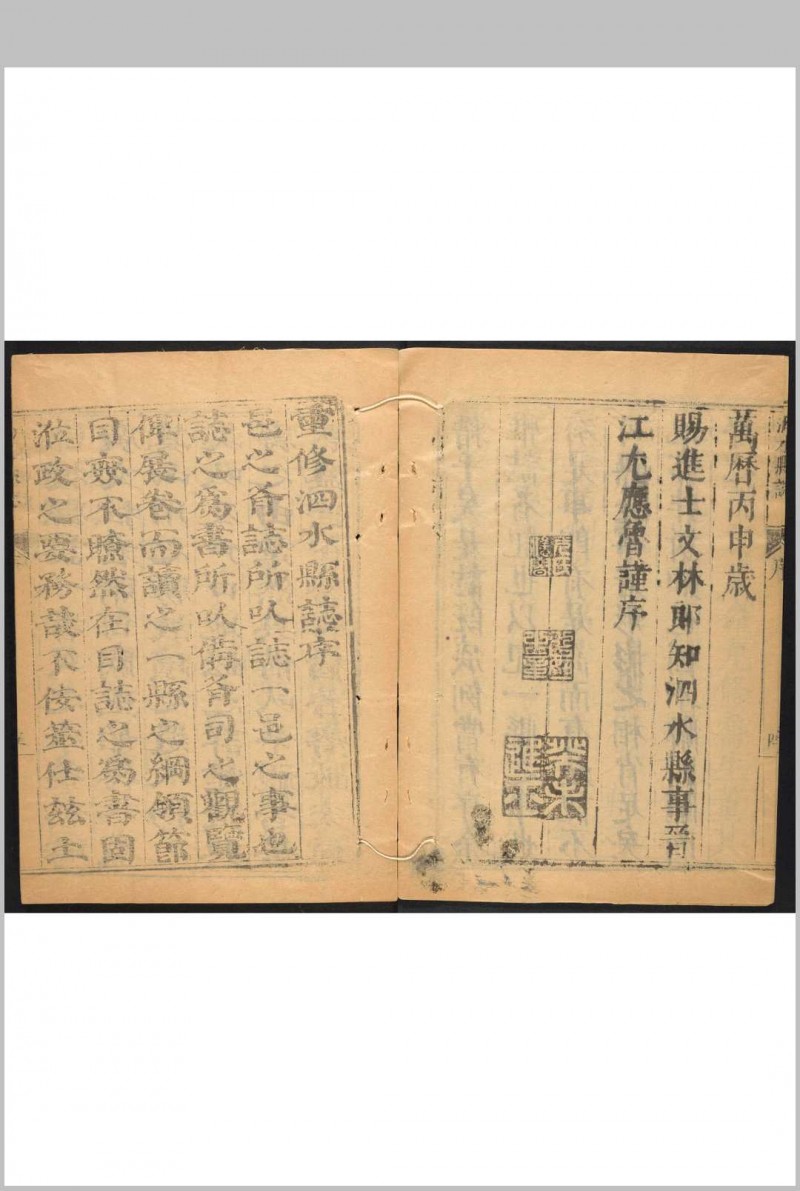 萬曆丙申歲
賜進士文林郎知泗水縣事晉
江尤應魯謹序
進士
重修泗水縣誌序
邑之有誌所以誌一邑之事也
誌之為書所以備有司之觀覽
俾展卷而讀之一縣之綱領節
目無不瞭然在目誌之為書固
蒞政之要務哉不佞筮仕茲土